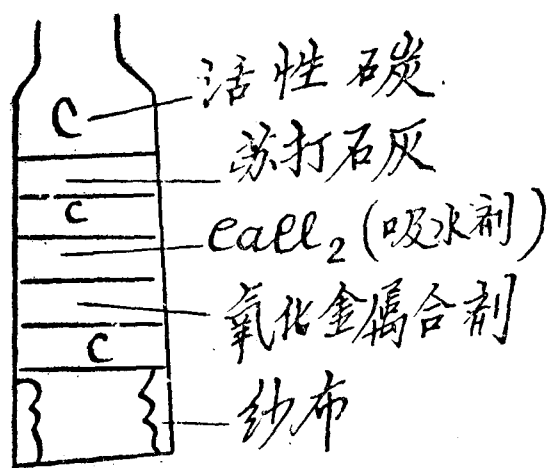 C 活性碳.
苏打石灰
C
CaCl₂(吸水剂)
氧化金属合剂
C
纱布